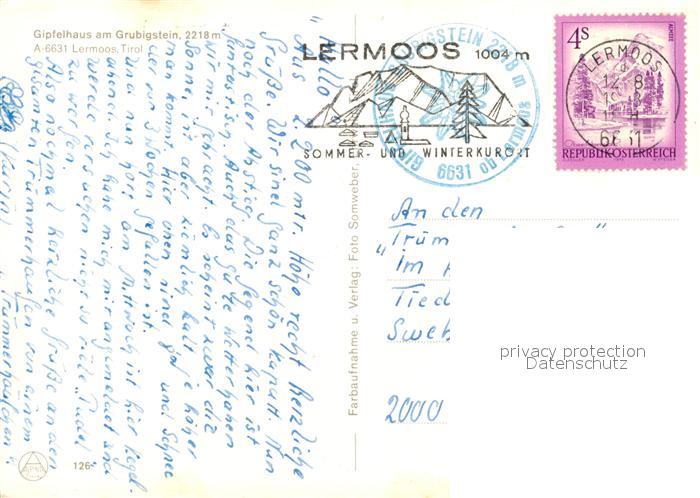 Gipfelhaus am Grubigstein, 2218 m
A-6631 Lermoos, Tirol
LERMOOS 1004 m
SOMMER- UND WINTERKURORT
GRUBIGSTEIN 2218 m
6631 ob Lermoos
4S
LERMOOS
6631
REPUBLIK ÖSTERREICH
Hallo!
Aus 2200 mtr. Höhe recht herzliche
Grüße. Wir sind ganz schön kaputt. Nun
noch der Abstieg. Die Gegend hier ist
fantastisch. Auch das gute Wetter haben
wir gepachtet. Es scheint zwar die
Sonne, aber ziemlich kalt je höher
man kommt. Hier oben sind und Schnee
der vor 3 Wochen gefallen ist.
Am Mittwoch ist hier Kegel-
abend. Ich habe mich mit angemeldet und
werde versuchen nicht so viel "Pudel"
zu werfen.
Also nochmal herzliche Grüße an den
gesamten Trümmerhaufen von einem
Trümmerhäufchen
(Karin)
Farbaufnahme u. Verlag: Foto Somweber,
An den
"Trüm
Im
Tied
Sweb
2000
privacy protection
Datenschutz
126-